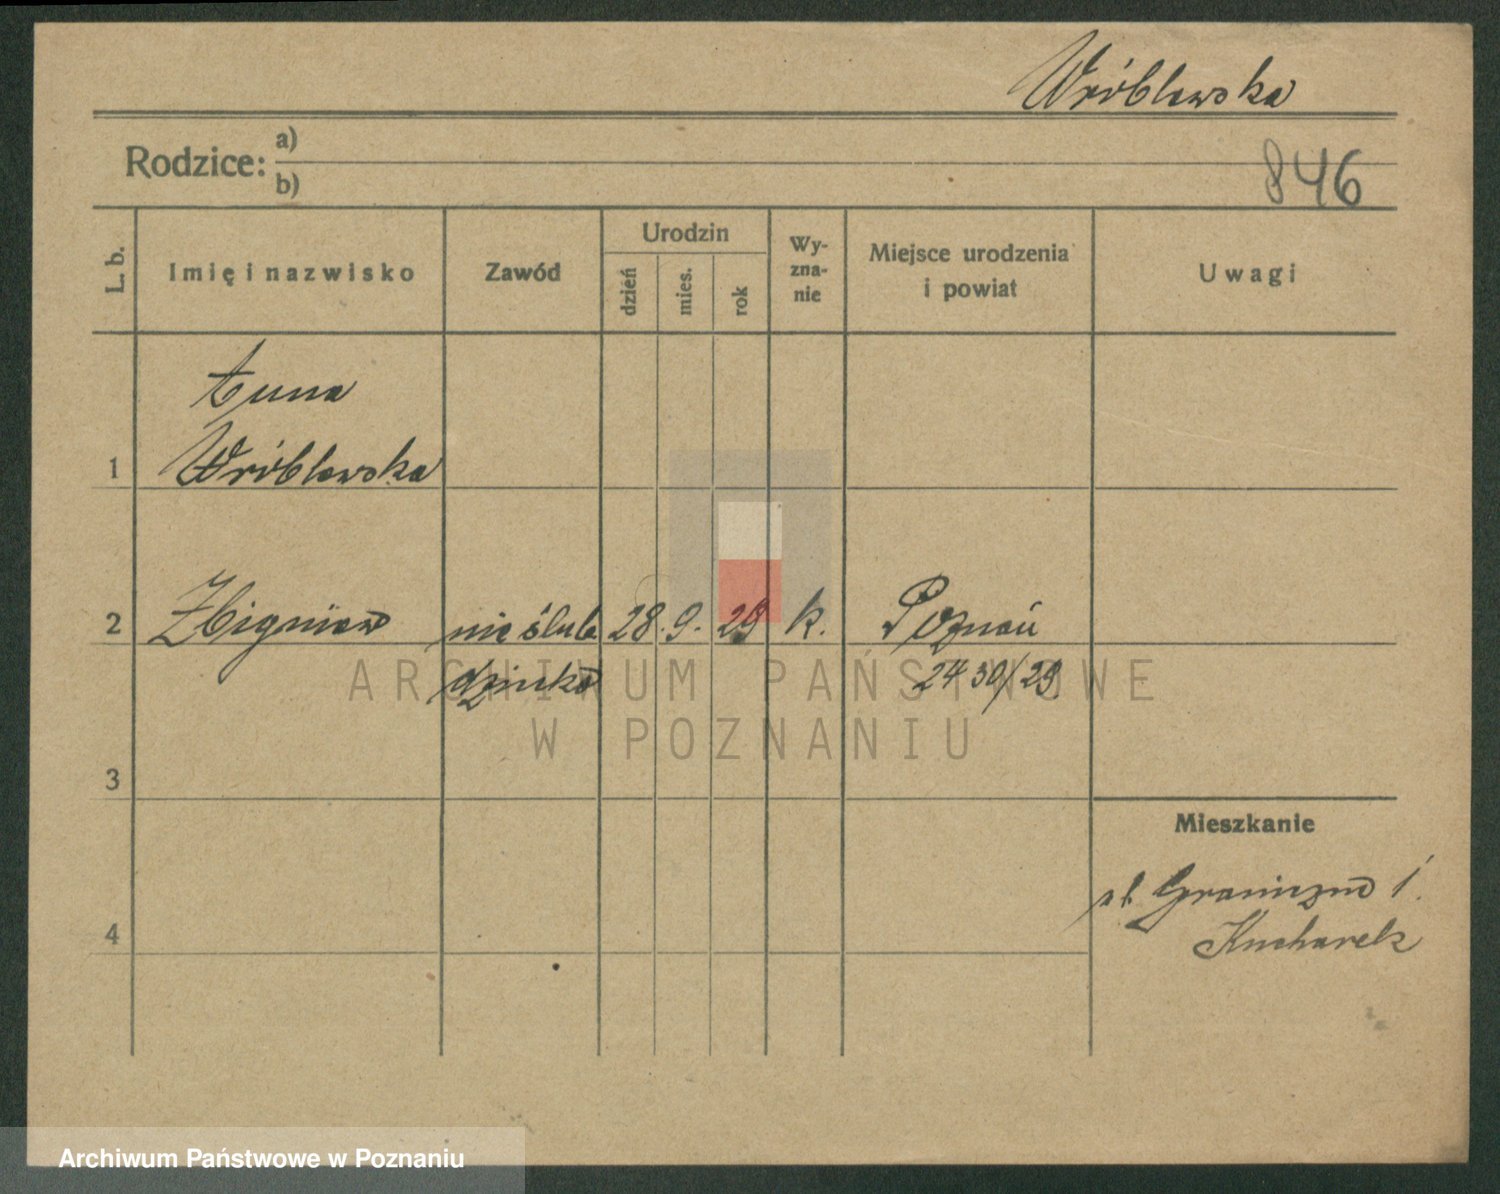 Wróblewska
Rodzice: a)
b)
846
L. b.
Imię i nazwisko
Zawód
Urodzin
dzień
mies.
rok
Wy-
zna-
nie
Miejsce urodzenia
i powiat
Uwagi
Anna
1 Wróblewska
2 Zbigniew nie ślub. 28. 9. 29 k. Poznań
dziecko 2430/29
ARCHIWUM PAŃSTWOWE
W POZNANIU
3
Mieszkanie
ul. Graniczna 1.
4 Kucharek
Archiwum Państwowe w Poznaniu